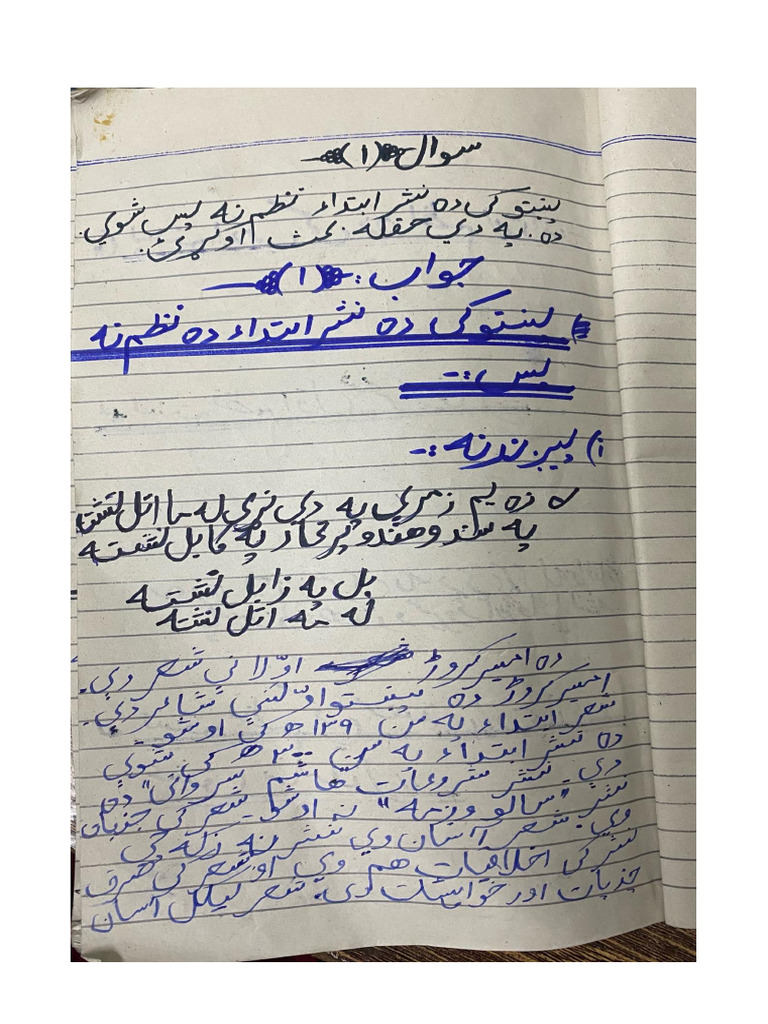 سوال (۱)
پښتو کی ده نثر ابتداء نظم نه پس شوي
ده. په دي حقله بحث اوکړئ.
جواب :- (۱)
پښتو کی ده نثر ابتداء ده نظم نه
پس :-
i) پیژندنه :-
ه زه یم زمری په دي نړي له ما اتل نشته
په سند و هند و پر تخار په کابل نشته
بل په زابل نشته
له مه اتل نشته
ده امیر کروړ اوّلاني شعر دي.
امیر کروړ ده پښتو اوّلنی شاعر دي.
شعر ابتداء په سن ۱۳۹ ھ کی او شو.
ده نثر ابتداء په سن ۳۰۰ ھ کی شوي
دي. نثر شروعات هاشم سروانی" ده
نثر "سالو وږمه" نه او شو. شعر کی جذبات
وي. شعر آسان وي نثر نه زکه کی
نثر کی اخلاقیات هم وي او شعر کی صرف
جذبات اور خواست دی. شعر لیکل آسان